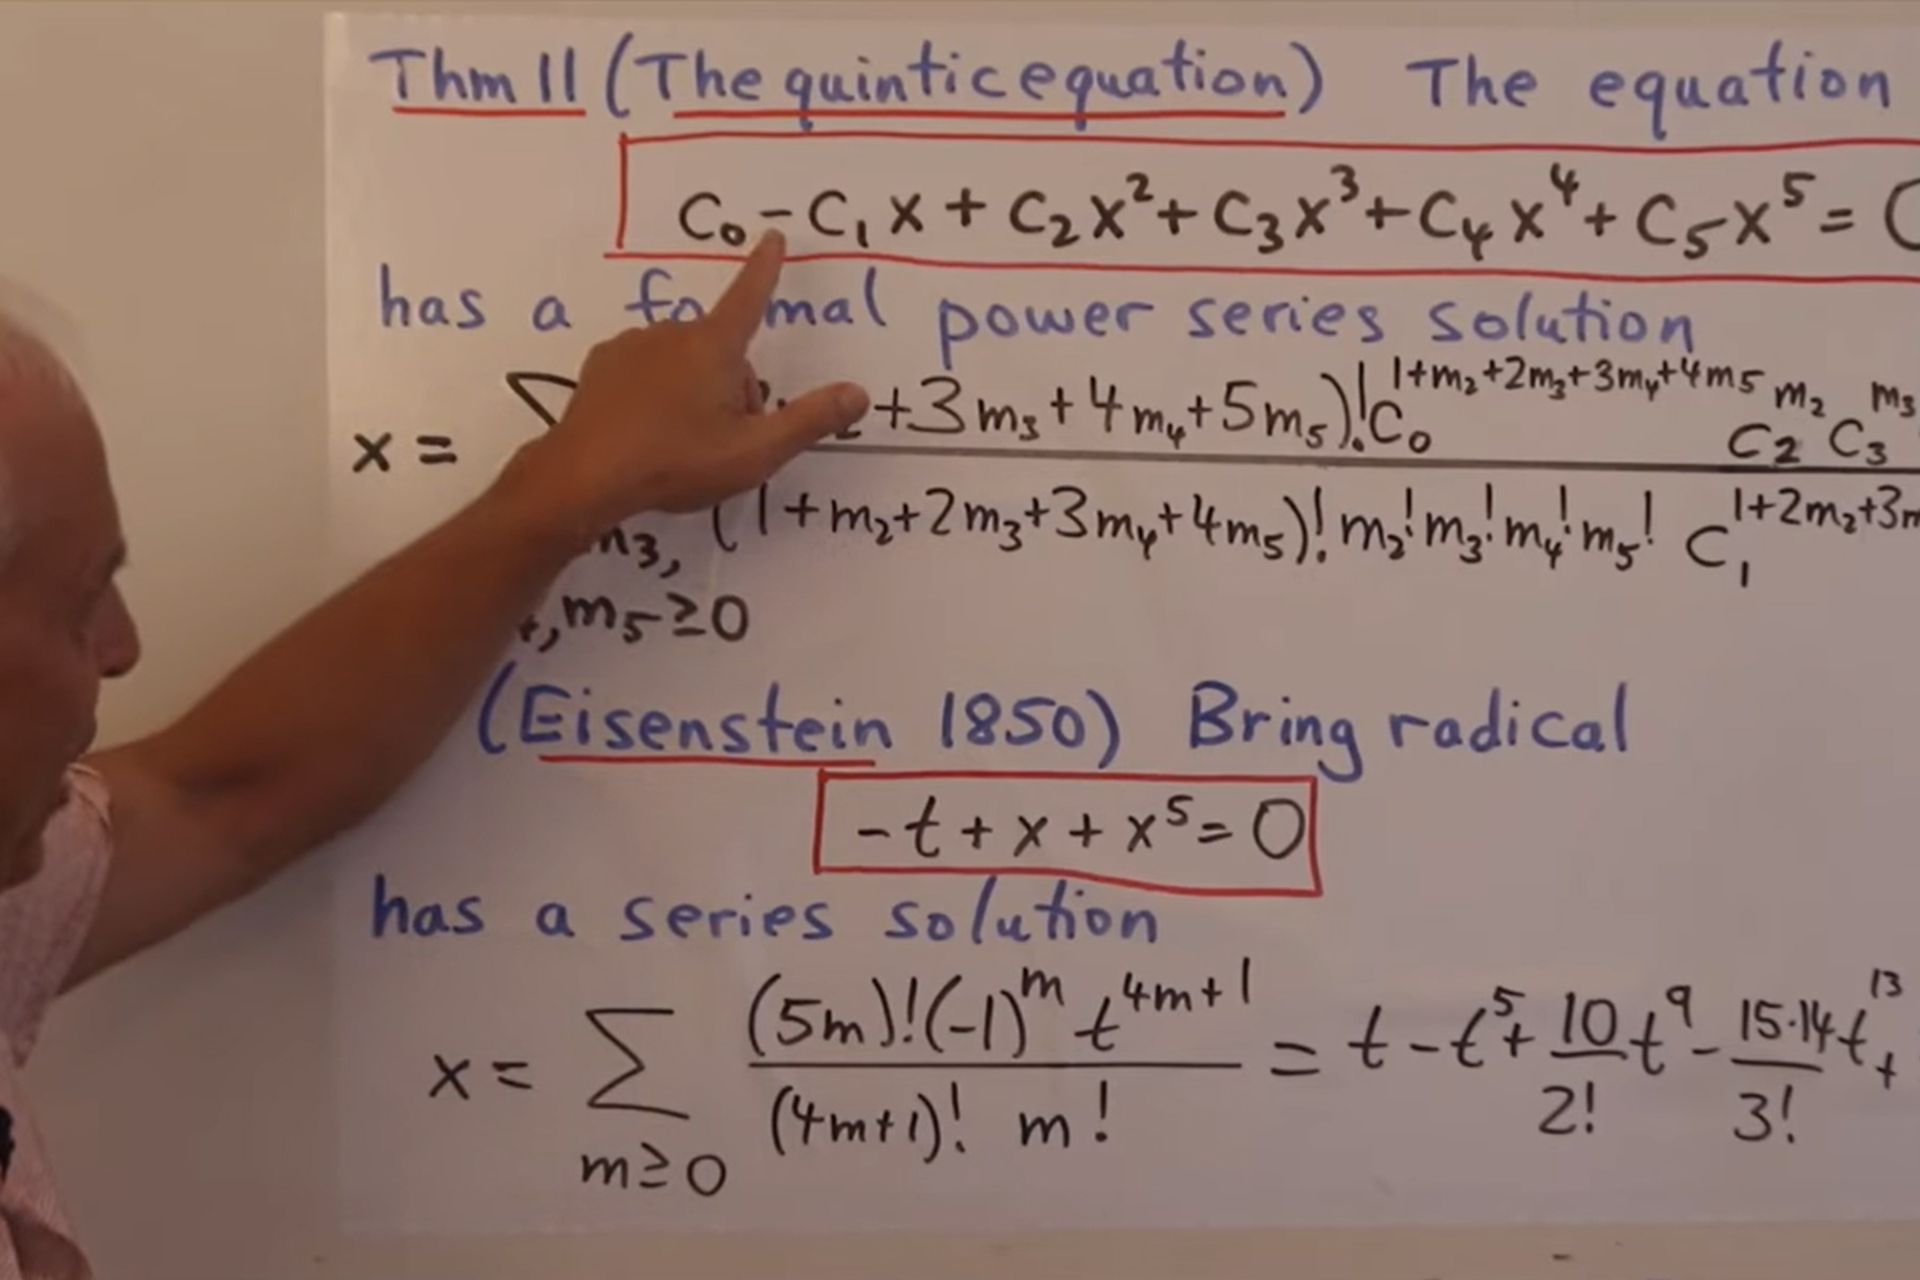 Thm 11 (The quintic equation) The equation
C₀ - C₁x + C₂x² + C₃x³ + C₄x⁴ + C₅x⁵ =
has a formal power series solution
x = ∑ +3m₃+4m₄+5m₅)! C₀^(1+m₂+2m₃+3m₄+4m₅) C₂^m₂ C₃^m₃
(1+m₂+2m₃+3m₄+4m₅)! m₂! m₃! m₄! m₅! C₁^(1+2m₂+3m
m₃,
, m₅≥0
(Eisenstein 1850) Bring radical
-t + x + x⁵ = 0
has a series solution
x = ∑ (5m)! (-1)^m t^(4m+1) = t - t⁵ + 10 t⁹ - 15·14 t¹³ +
(4m+1)! m! 2! 3!
m≥0